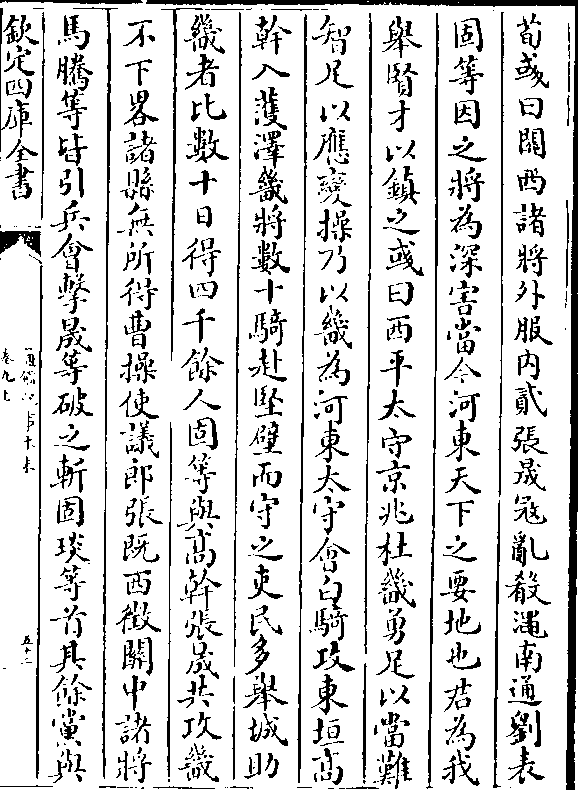 荀彧曰關西諸將外服内貳張晟冦亂殽澠南通劉表
固等因之將為深害當今河東天下之要地也君為我
舉賢才以鎮之彧曰西平太守京兆杜畿勇足以當難
智足以應變操乃以畿為河東太守會白騎攻東垣高
幹入濩澤畿將數十騎赴堅壁而守之吏民多舉城助
畿者比數十日得四千餘人固等與高幹張晟共攻畿
不下畧諸縣無所得曹操使議郎張既西徵關中諸將
馬騰等皆引兵會擊晟等破之斬固琰等首其餘黨與
欽定四庫全書
卷九上
五十二